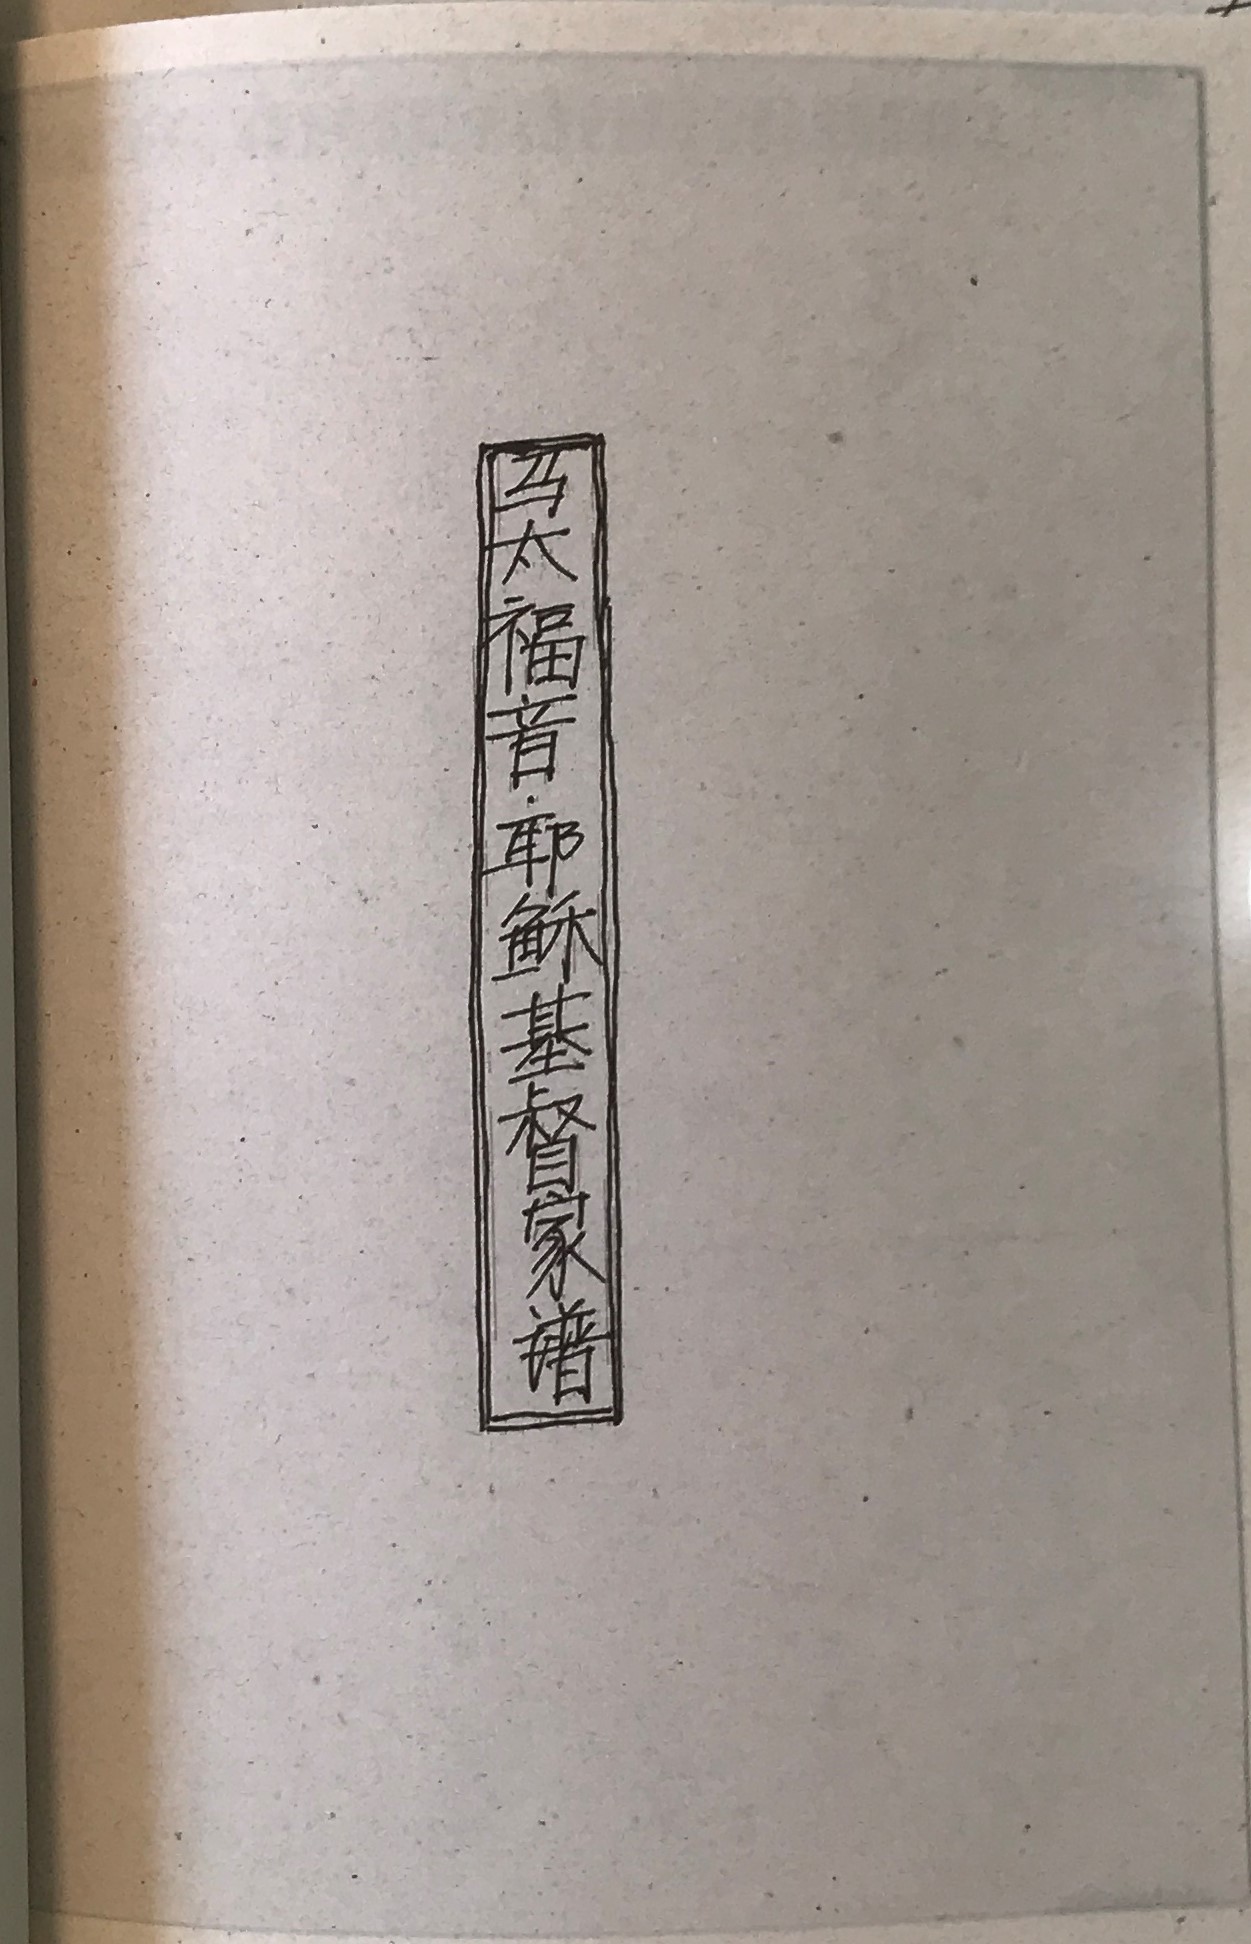 马太福音·耶稣基督家谱